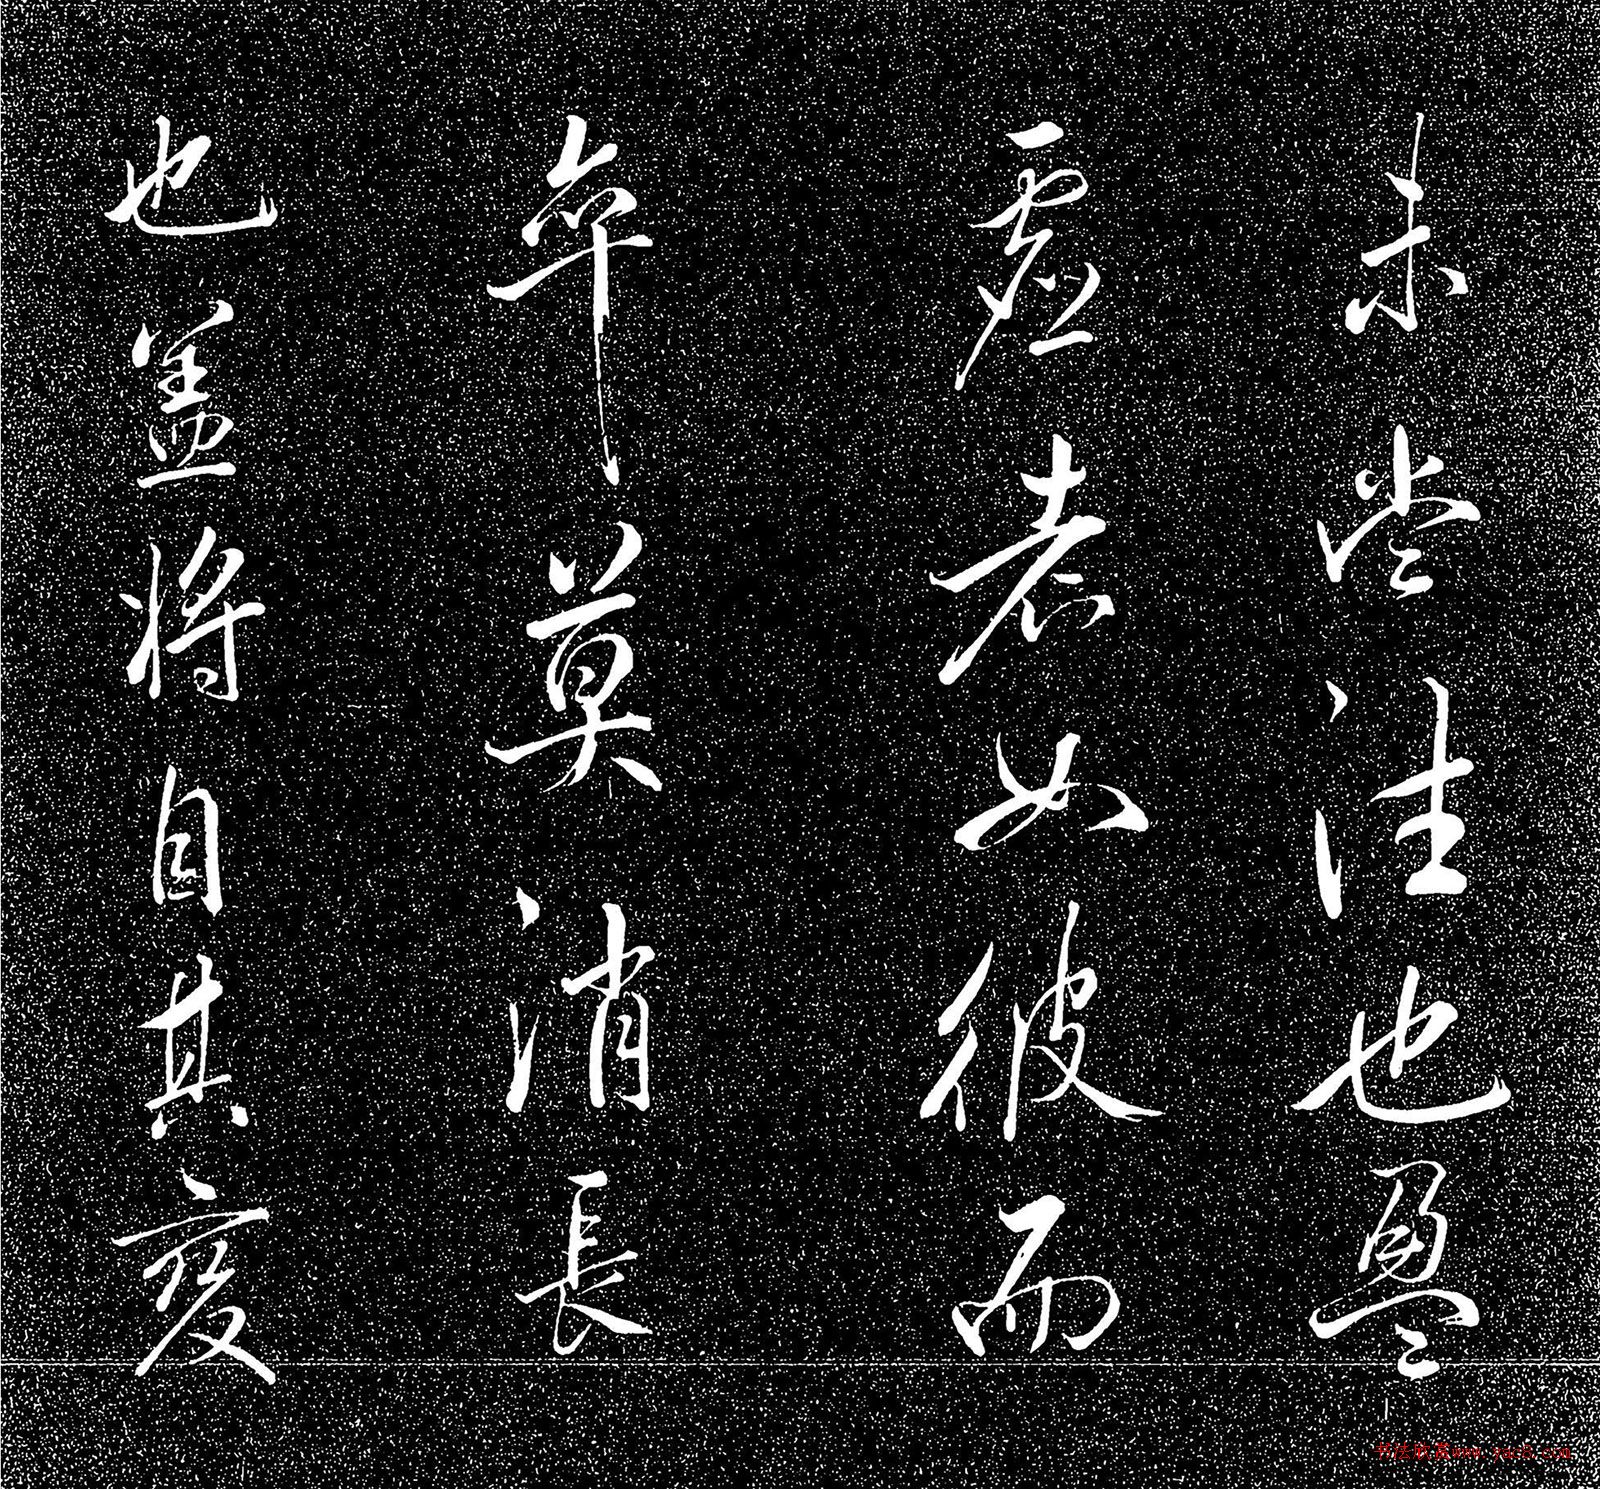 未嘗往也盈
虛者如彼而
卒莫消長
也蓋將自其變
书法欣赏www.yac8.com